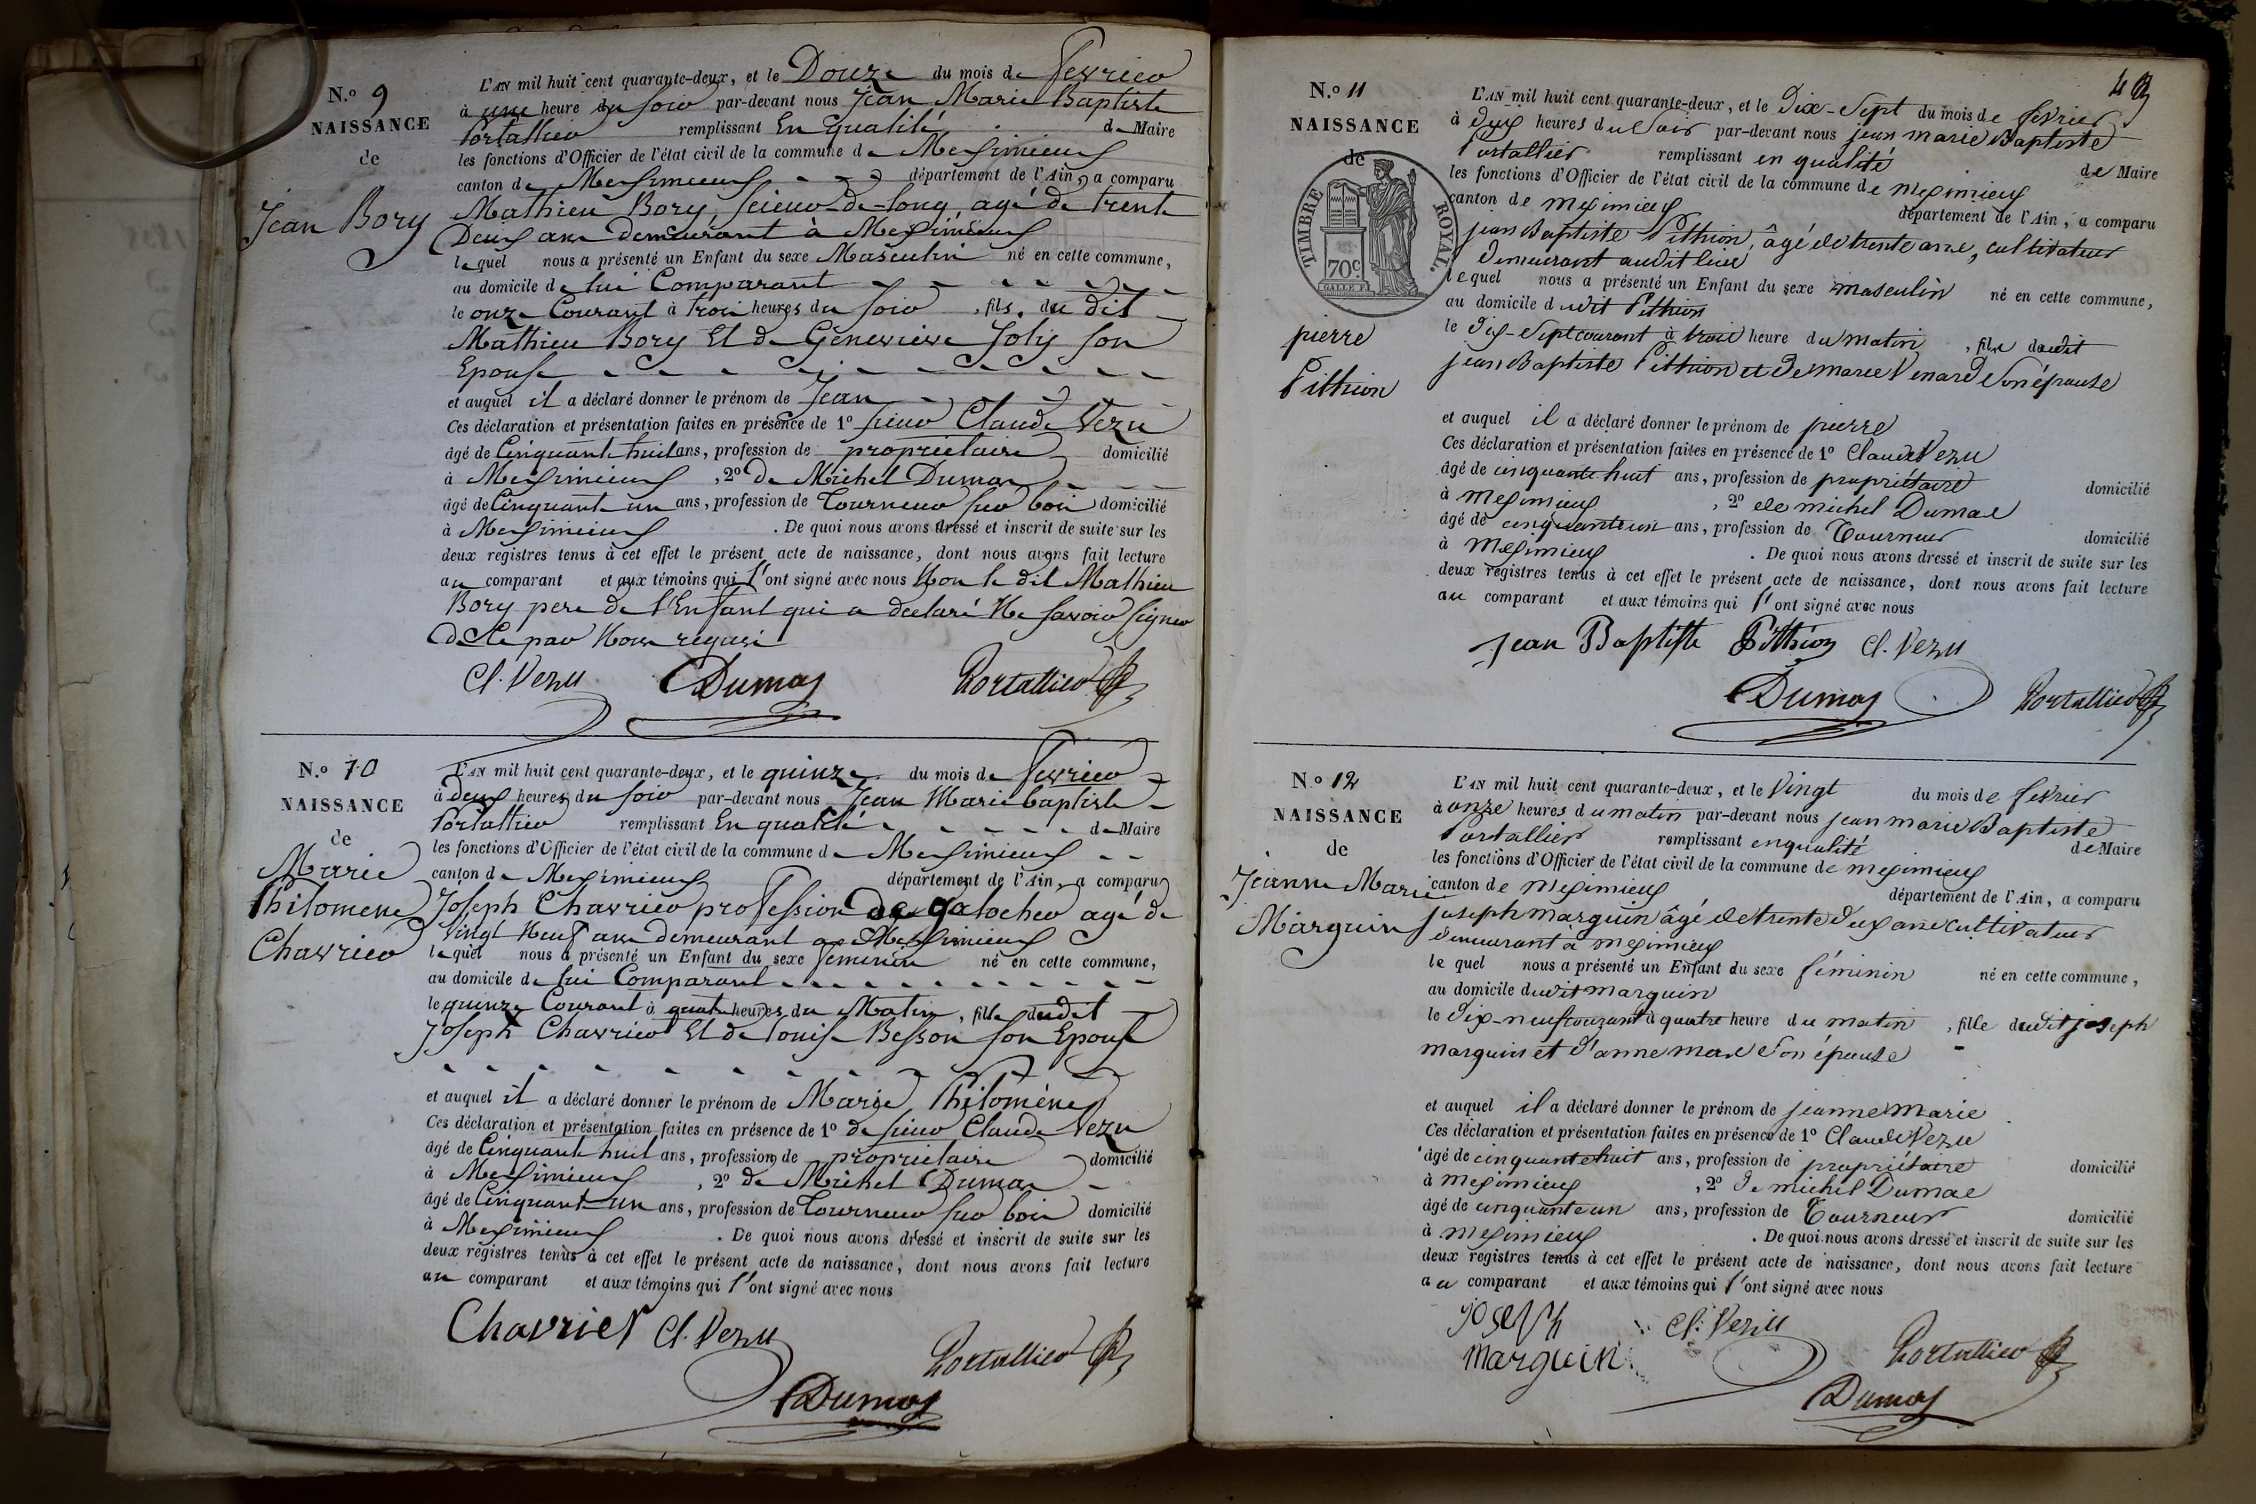 N.o 9
NAISSANCE
de
Jean Bory
L'AN mil huit cent quarante-deux, et le Douze du mois de fevrier
à une heure du soir par-devant nous Jean Marie Baptiste
Portallier remplissant En qualité de Maire
les fonctions d'Officier de l'état civil de la commune de Meximieux
canton de Meximieux département de l'Ain, a comparu
Mathieu Bory, scieur-de-long agé de trente
Deux ans demeurant à Meximieux
lequel nous a présenté un Enfant du sexe Masculin né en cette commune,
au domicile de lui Comparant
le onze Courant à trois heures du soir, fils. du dit
Mathieu Bory Et de Genevieve Joly son
Epouse
et auquel il a déclaré donner le prénom de Jean
Ces déclaration et présentation faites en présence de 1o sieur Claude Vezu
âgé de Cinquante huit ans, profession de propriétaire domicilié
à Meximieux, 2o de Michel Dumas
âgé de Cinquante un ans, profession de Tourneur sur bois domicilié
à Meximieux. De quoi nous avons dressé et inscrit de suite sur les
deux registres tenus à cet effet le présent acte de naissance, dont nous avons fait lecture
au comparant et aux témoins qui l'ont signé avec nous Non le dit Mathieu
Bory pere de l'Enfant qui a declaré Ne savoir signer
de ce par Nous requis
Cl. Vezu Dumas Portallier
N.o 10
NAISSANCE
de
Marie
Philomene
Chavrier
L'AN mil huit cent quarante-deux, et le quinze du mois de fevrier
à deux heures du soir par-devant nous Jean Marie baptiste
Portallier remplissant En qualité de Maire
les fonctions d'Officier de l'état civil de la commune de Meximieux
canton de Meximieux département de l'Ain, a comparu
Joseph Chavrier profession de galocher agé de
Vingt Neuf ans demeurant a Meximieux
lequel nous a présenté un Enfant du sexe feminin né en cette commune,
au domicile de lui Comparant
le quinze Courant à quatre heures du Matin, fille dudit
Joseph Chavrier Et de Louise Besson son Epouse
et auquel il a déclaré donner le prénom de Marie Philomène
Ces déclaration et présentation faites en présence de 1o de sieur Claude Vezu
âgé de Cinquante huit ans, profession de propriétaire domicilié
à Meximieux, 2o de Michel Dumas
âgé de Cinquante un ans, profession de Tourneur sur bois domicilié
à Meximieux. De quoi nous avons dressé et inscrit de suite sur les
deux registres tenus à cet effet le présent acte de naissance, dont nous avons fait lecture
au comparant et aux témoins qui l'ont signé avec nous
Chavrier Cl. Vezu Portallier
Dumas
4
N.o 11
NAISSANCE
de
TIMBRE ROYAL.
70c
pierre
Pithion
L'AN mil huit cent quarante-deux, et le Dix-Sept du mois de février
à dix heures du Soir par-devant nous jean marie Baptiste
Portallier remplissant en qualité de Maire
les fonctions d'Officier de l'état civil de la commune de meximieux
canton de meximieux département de l'Ain, a comparu
jean Baptiste Pithion, âgé de trente ans, cultivateur
demeurant audit lieu
lequel nous a présenté un Enfant du sexe masculin né en cette commune,
au domicile dudit Pithion
le dix-Sept courant à trois heure du matin, fils dudit
jean Baptiste Pithion et de marie Venard Son épouse
et auquel il a déclaré donner le prénom de pierre
Ces déclaration et présentation faites en présence de 1o Claude Vezu
âgé de cinquante huit ans, profession de propriétaire domicilié
à meximieux, 2o de michel Dumas
âgé de cinquante un ans, profession de Tourneur domicilié
à meximieux. De quoi nous avons dressé et inscrit de suite sur les
deux registres tenus à cet effet le présent acte de naissance, dont nous avons fait lecture
au comparant et aux témoins qui l'ont signé avec nous
jean Baptiste Pithion Cl. Vezu
Dumas Portallier
N.o 12
NAISSANCE
de
Jeanne Marie
Marguin
L'AN mil huit cent quarante-deux, et le Vingt du mois de février
à onze heures du matin par-devant nous jean marie Baptiste
Portallier remplissant en qualité de Maire
les fonctions d'Officier de l'état civil de la commune de meximieux
canton de meximieux département de l'Ain, a comparu
joseph marguin âgé de trente deux ans cultivateur
demeurant à meximieux
le quel nous a présenté un Enfant du sexe féminin né en cette commune,
au domicile dudit marguin
le dix-neuf courant à quatre heure du matin, fille dudit joseph
marguin et d'anne mas Son épouse
et auquel il a déclaré donner le prénom de jeanne marie
Ces déclaration et présentation faites en présence de 1o Claude Vezu
âgé de cinquante huit ans, profession de propriétaire domicilié
à meximieux, 2o de michel Dumas
âgé de cinquante un ans, profession de Tourneur domicilié
à meximieux. De quoi nous avons dressé et inscrit de suite sur les
deux registres tenus à cet effet le présent acte de naissance, dont nous avons fait lecture
au comparant et aux témoins qui l'ont signé avec nous
joseph Cl. Vezu
marguin Portallier
Dumas